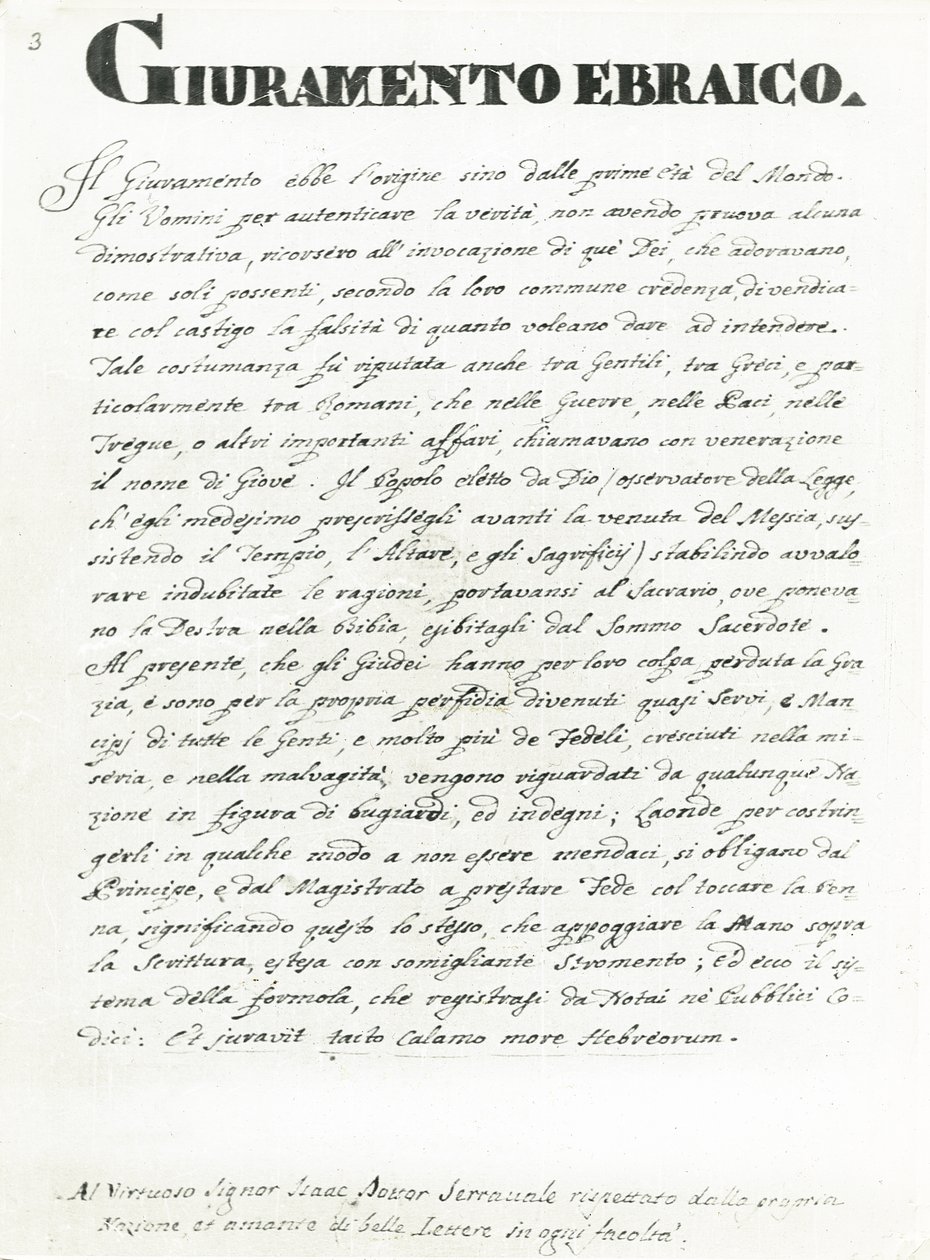 3
GIURAMENTO EBRAICO.
Il Giuramento ebbe l'origine sino dalle prime età del Mondo.
Gli Vomini per autenticare la verità, non avendo pruova alcuna
dimostrativa, ricorsero all'invocazione di què Dei, che adoravano,
come soli possenti, secondo la loro commune credenza, di vendica=
re col castigo la falsità di quanto voleano dare ad intendere.
Tale costumanza fù riputata anche tra Gentili, tra Greci, e par=
ticolarmente tra Romani, che nelle Guerre, nelle Paci, nelle
Tregue, o altri importanti affari, chiamavano con venerazione
il nome di Giove. Il Popolo eletto da Dio (osservatore della Legge,
ch'egli medesimo prescrissegli avanti la venuta del Messia, sus=
sistendo il Tempio, l'Altare, e gli Sagrificij) stabilindo avvalo
rare indubitate le ragioni, portavansi al Sacrario, ove poneva=
no la Destra nella Bibia, esibitagli dal Sommo Sacerdote.
Al presente, che gli Giudei hanno per loro colpa perduta la Gra
zia, e sono per la propria perfidia divenuti quasi Servi, e Man=
cipj di tutte le Genti, e molto più de Fedeli, cresciuti nella mi=
seria, e nella malvagità, vengono riguardati da qualunque Na=
zione in figura di bugiardi, ed indegni; Laonde per costrin=
gerli in qualche modo a non essere mendaci, si obligano dal
Principe, e dal Magistrato a prestare Fede col toccare la Pen=
na, significando questo lo stesso, che appoggiare la Mano sopra
la Scrittura, estesa con somigliante Stromento; Ed ecco il sis=
tema della formola, che registrasi da Notai nè Pubblici Co=
dici: Et juravit tacto Calamo more Hebreorum.
Al Virtuoso Signor Isaac Dottor Serravale rispettato dalla propria
Nazione, et amante di belle Lettere in ogni facoltà.